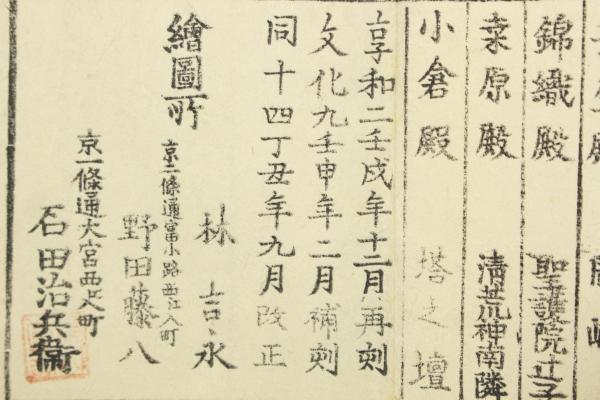 錦織殿 聖護院辻子
桒原殿 清荒神南隣
小倉殿 塔之壇
享和二壬戌年十二月再刻
文化九壬申年二月補刻
同十四丁丑年九月改正
繪圖所
林吉永
京二條通富小路西江入町
野田藤八
京一條通大宮西江入町
石田治兵衛